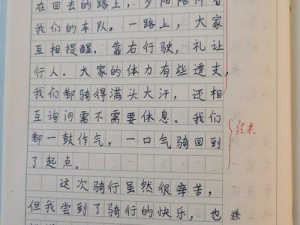 在回去的路上，夕阳陪伴着
我们的车队。一路上，大家
互相提醒，靠右行驶，礼让
行人。大家的体力有些透支，
我们都骑得满头大汗，还相
互询问需不需要休息。我们
都一鼓作气，一口气骑回到
了起点。
这次骑行虽然很辛苦，
但我尝到了骑行的快乐，也
结束